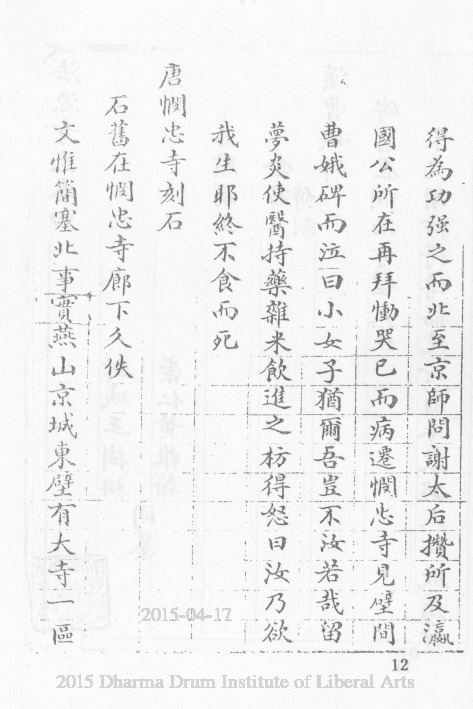 得為功强之而北至京師問謝太后攢所及瀛
國公所在再拜慟哭已而病遷憫忠寺見壁間
曹娥碑而泣曰小女子猶爾吾豈不汝若哉留
夢炎使醫持藥雜米飲進之枋得怒曰汝乃欲
我生耶終不食而死
唐憫忠寺刻石
石舊在憫忠寺廊下久佚
文惟簡塞北事實燕山京城東壁有大寺一區
2015-04-17
12
2015 Dharma Drum Institute of Liberal Arts